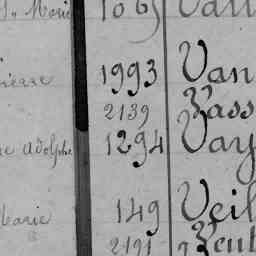 Marie 1065 Van
Pierre 1993 Van
2139 Vass
Adolphe 1294 Vay
Marie 149 Veil
2191 Vent